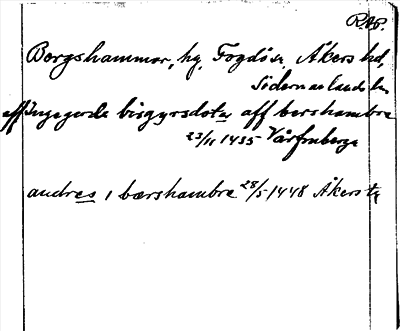 R.A.P.
Bergshammar, hg, Fogdö sn, Åkers hd,
Södermanlands län
aff Ingegerde birgyrsdoter aff bershambra
23/11 1435 Vårfruberga
andres i bærshambra 28/5 1448 Åkers tg